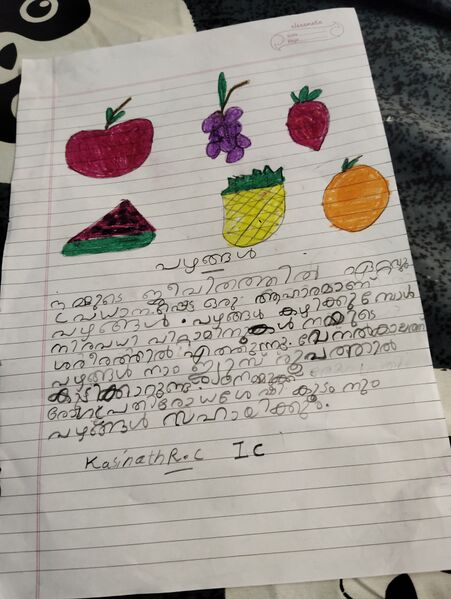 classmate
Date
Page
പഴങ്ങൾ
നമ്മുടെ ജീവിതത്തിൽ ഏറ്റവും
പ്രധാനപ്പെട്ട ഒരു ആഹാരമാണ്
പഴങ്ങൾ. പഴങ്ങൾ കഴിക്കുമ്പോൾ
നിരവധി വിറ്റാമിനുകൾ നമ്മുടെ
ശരീരത്തിൽ എത്തുന്നു. വേനൽകാലത്ത്
പഴങ്ങൾ നാം ജ്യൂസ് രൂപത്തിൽ
കുടിക്കാറുണ്ട് നമുക്ക്
രോഗപ്രതിരോധശേഷി കൂടാനും
പഴങ്ങൾ സഹായിക്കും.
Kasinath R.C I C